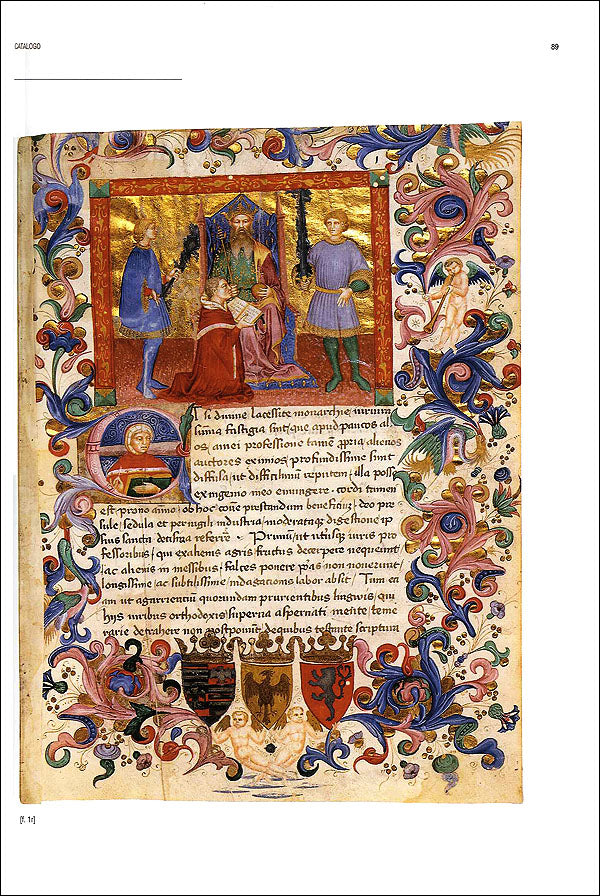 CATALOGO
89
si divine lacessite monarchie
fastigia sint que apud paucos al
os amei professione tamen alienos
auctores eximios profundissime sint
ut difficilimum reputem illa posse
ex ingenio meo emungere cordi tamen
est prono animo ob hoc prestandum beneficium deo pre
sule sedula et pervigili industria moderataque digestione ip
referre ut utriusque iuris pro
fessoribus qui ex alienis agris fructus decerpere nequeunt
ac alienis in messibus falces ponere non noverunt
longissime ac subtilissime indagacionis labor absit Tum et
am ut quorundam prurientibus linguis qui
hijs viribus orthodoxis superna aspernati mente teme
rarie detrahere non postponunt de quibus testante scriptura
[f. 1r]